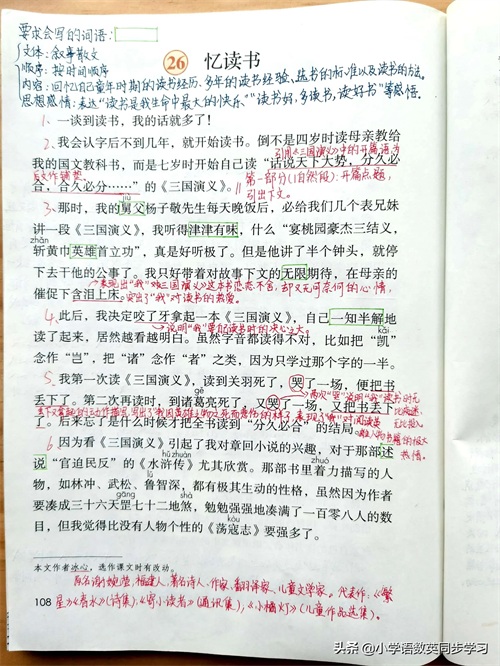 要求会写的词语：
文体：叙事散文
顺序：按时间顺序
内容：回忆自己童年时期的读书经历、多年的读书经验、选书的标准以及读书的方法。
思想感情：表达“读书是我生命中最大的快乐”“读书好，多读书，读好书”等感悟。
26 忆读书
1. 一谈到读书，我的话就多了！
2. 我会认字后不到几年，就开始读书。倒不是四岁时读母亲教给
引用《三国演义》中的开篇语
我的国文教科书，而是七岁时开始自己读“话说天下大势，分久必
为后文作铺垫
第一部分(1自然段)：开篇点题，
合，合久必分……”的《三国演义》。
引出下文。
jiù
3. 那时，我的舅父杨子敬先生每天晚饭后，必给我们几个表兄妹
讲一段《三国演义》，我听得津津有味，什么“宴桃园豪杰三结义，
zhǎn
斩黄巾英雄首立功”，真是好听极了。但是他讲了半个钟头，就停
下去干他的公事了。我只好带着对故事下文的无限期待，在母亲的
表现出“我”对《三国演义》这本书恋恋不舍，却又无可奈何的心情，
催促下含泪上床。
突出了“我”对读书的热爱。
4. 此后，我决定咬了牙拿起一本《三国演义》，自己一知半解地
说明“我”要自己读书时的决心之大。
读了起来，居然越看越明白。虽然字音都读得不对，比如把“凯”
kǎi
念作“岂”，把“诸”念作“者”之类，因为只学过那个字的一半。
5. 我第一次读《三国演义》，读到关羽死了，哭了一场，便把书
gě
丢下了。第二次再读时，到诸葛亮死了，又哭了一场，又把书丢下
了。后来忘了是什么时候才把全书读到“分久必合”的结局。
6. 因为看《三国演义》引起了我对章回小说的兴趣，对于那部述
热情。
hǔ zhuàn
说“官迫民反”的《水浒传》尤其欣赏。那部书里着力描写的人
物，如林冲、武松、鲁智深，都有极其生动的性格，虽然因为作者
gāng shà
要凑成三十六天罡七十二地煞，勉勉强强地凑满了一百零八人的数
kòu
目，但我觉得比没有人物个性的《荡寇志》要强多了。
本文作者冰心，选作课文时有改动。
原名谢婉莹，福建人，著名诗人、作家、翻译家、儿童文学家。代表作：《繁
108
星》《春水》(诗集)，《寄小读者》(通讯集)，《小桔灯》(儿童作品选集)。
头条 @小学语数英同步学习